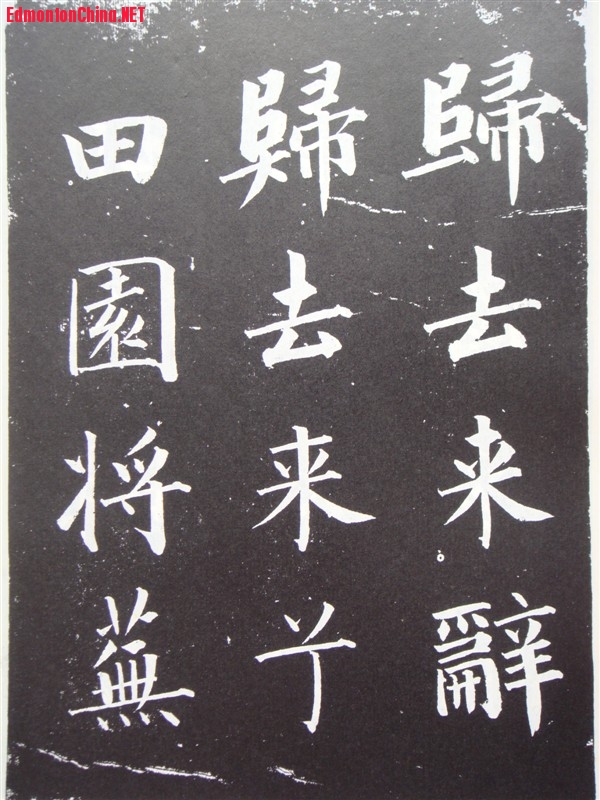 EdmontonChina.NET
歸去来辭
歸去来兮
田園将蕪